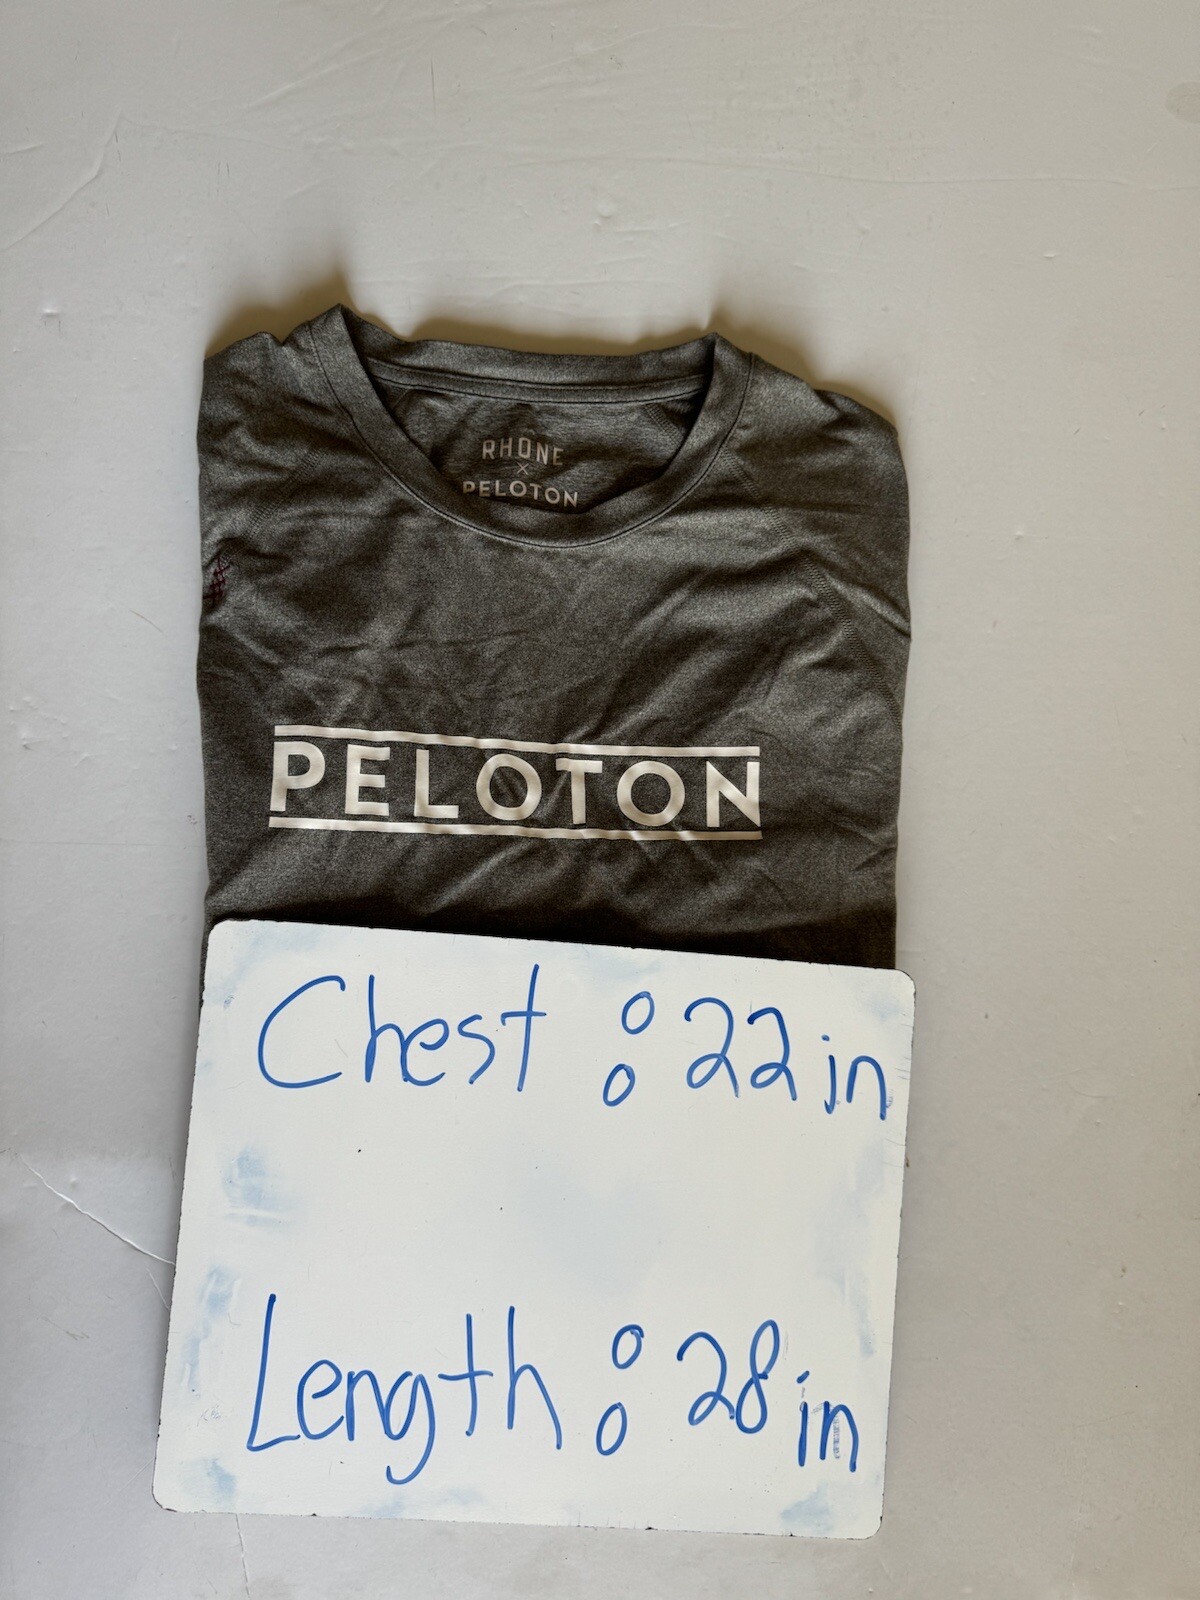 RHONE
X
PELOTON
PELOTON
Chest : 22 in
Length : 28 in